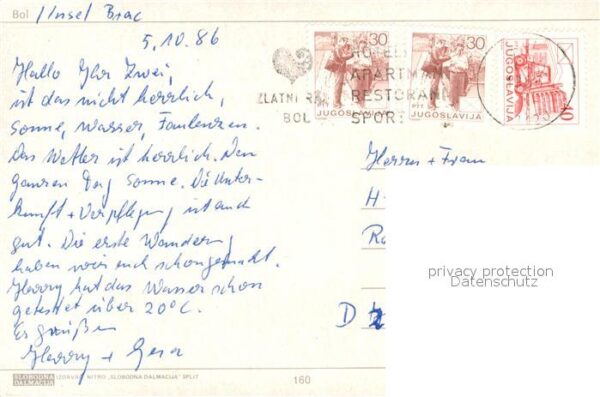 Bol / Insel Brac
5.10.86
Hallo Ihr Zwei,
ist das nicht herrlich,
Sonne, Wasser, Faulenzen.
Das Wetter ist herrlich. Den
ganzen Tag Sonne. Die Unter-
kunft + Verpflegung ist auch
gut. Die erste Wanderung
haben wir auch schon gemacht.
Harry hat das Wasser schon
getestet über 20°C.
Es grüßen
Harry + Gera
30
30
40
JUGOSLAVIJA
JUGOSLAVIJA
JUGOSLAVIJA
HOTELI
APARTMANI
ZLATNI RAT RESTORANI
BOL SPORT
Herrn + Frau
H
Ra
D
privacy protection
Datenschutz
SLOBODNA
DALMACIJA
IZDAVAČ NITRO „SLOBODNA DALMACIJA" SPLIT
160